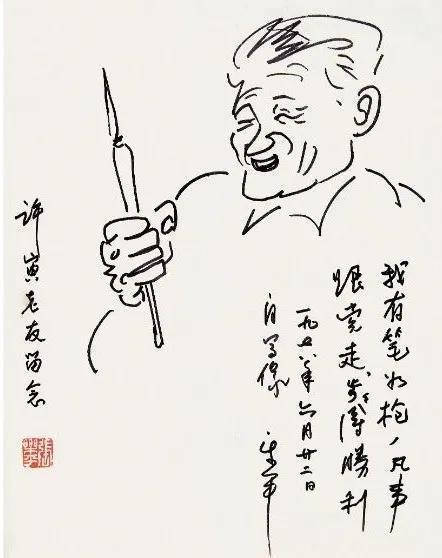 我有笔如枪,凡事
跟党走,步々得勝利
一九七八年六月廿二日
自写像 乐平
许寅老友留念